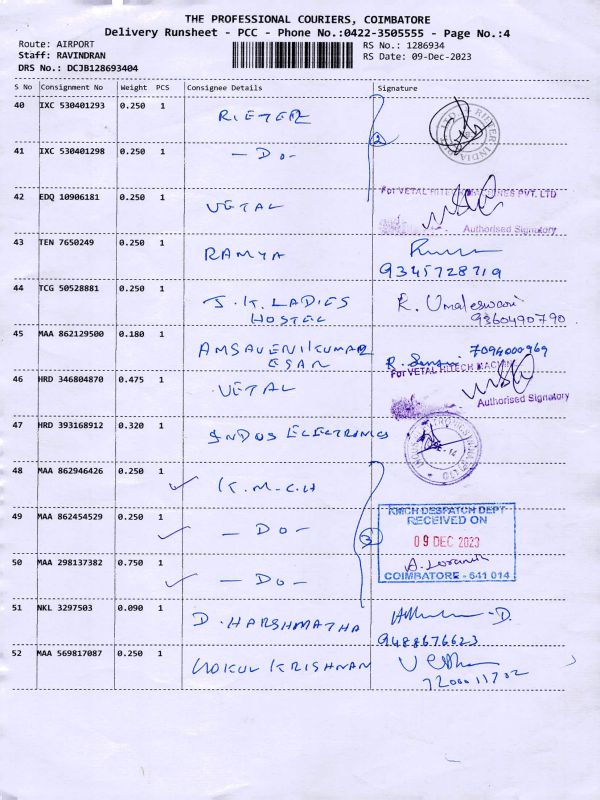 THE PROFESSIONAL COURIERS, COIMBATORE
Delivery Runsheet - PCC - Phone No.:0422-3505555 - Page No.:4
Route: AIRPORT RS No.: 1286934
Staff: RAVINDRAN RS Date: 09-Dec-2023
DRS No.: DCJB128693404
S No Consignment No Weight PCS Consignee Details Signature
40 IXC 530401293 0.250 1 RIETER
2
41 IXC 530401298 0.250 1 - Do -
42 EDQ 10906181 0.250 1 VETAL For VETAL HITECH MACHINES PVT. LTD
Authorised Signatory
43 TEN 7650249 0.250 1 RAMYA
9345728719
44 TCG 50528881 0.250 1 J.K. LADIES R. Umaleswari
HOSTEL 9360490790
45 MAA 862129500 0.180 1 AMSAVENIKUMAR 7094000969
ESAN
46 HRD 346804870 0.475 1 VETAL For VETAL HITECH MACHIN
Authorised Signatory
47 HRD 393168912 0.320 1 INDUS ELECTRONICS
48 MAA 862946426 0.250 1 K.M.C.H
49 MAA 862454529 0.250 1 - Do - KMCH DESPATCH DEPT
RECEIVED ON
3 09 DEC 2023
50 MAA 298137382 0.750 1 - Do -
COIMBATORE - 641 014
51 NKL 3297503 0.090 1 D. HARSHMATHA
9488676623
52 MAA 569817087 0.250 1 GOKUL KRISHNAN
7200011702